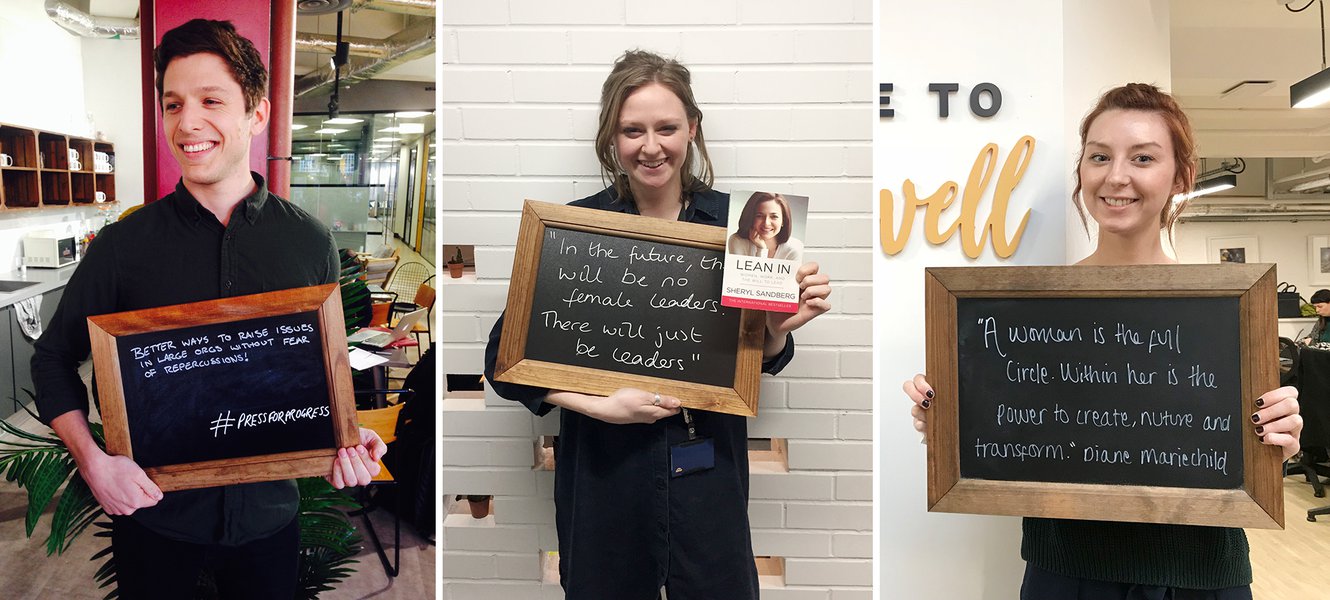 BETTER WAYS TO RAISE ISSUES
IN LARGE ORGS WITHOUT FEAR
OF REPERCUSSIONS!
#PRESSFORPROGRESS
"In the future, th
will be no
female leaders.
There will just
be leaders"
LEAN IN
WOMEN, WORK, AND
THE WILL TO LEAD
SHERYL SANDBERG
THE INTERNATIONAL BESTSELLER
E TO
well
"A woman is the full
Circle. Within her is the
power to create, nuture and
transform." Diane Mariechild